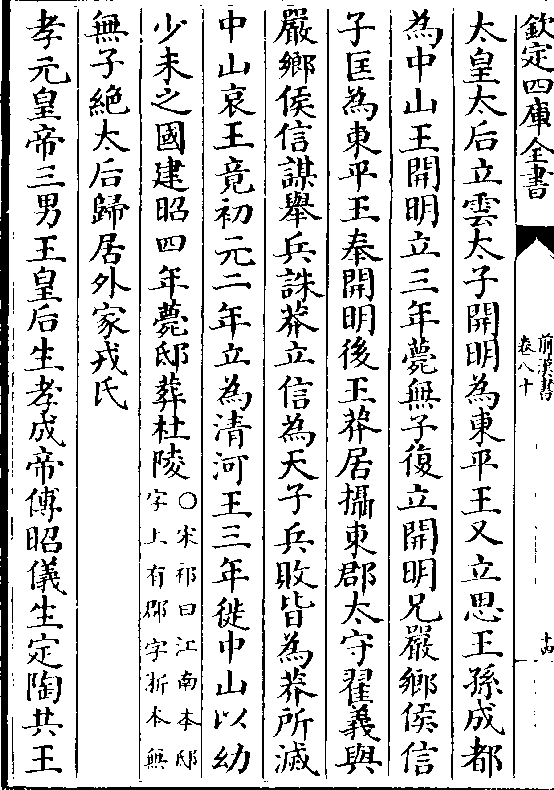 欽定四庫全書
前漢書
卷八十
十四
太皇太后立雲太子開明為東平王又立思王孫成都
為中山王開明立三年薨無子復立開明兄嚴鄉侯信
子匡為東平王奉開明後王莽居攝東郡太守翟義與
嚴鄉侯信謀舉兵誅莽立信為天子兵敗皆為莽所滅
中山哀王竟初元二年立為清河王三年徙中山以幼
少未之國建昭四年薨邸葬杜陵○宋祁曰江南本邸
字上有郡字浙本無
無子絶太后歸居外家戎氏
孝元皇帝三男王皇后生孝成帝傅昭儀生定陶共王